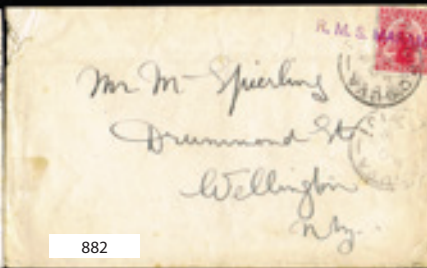 R. M. S. 
Mr M. Spierling
Drummond St
Wellington
N. Z.
882